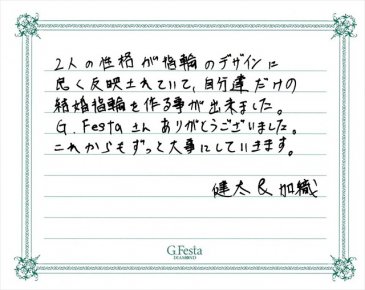 2人の性格が指輪のデザインに
良く反映されていて、自分達だけの
結婚指輪を作る事が出来ました。
G.Festaさんありがとうございました。
これからもずっと大事にしていきます。
健太&加織
G.Festa
DIAMOND